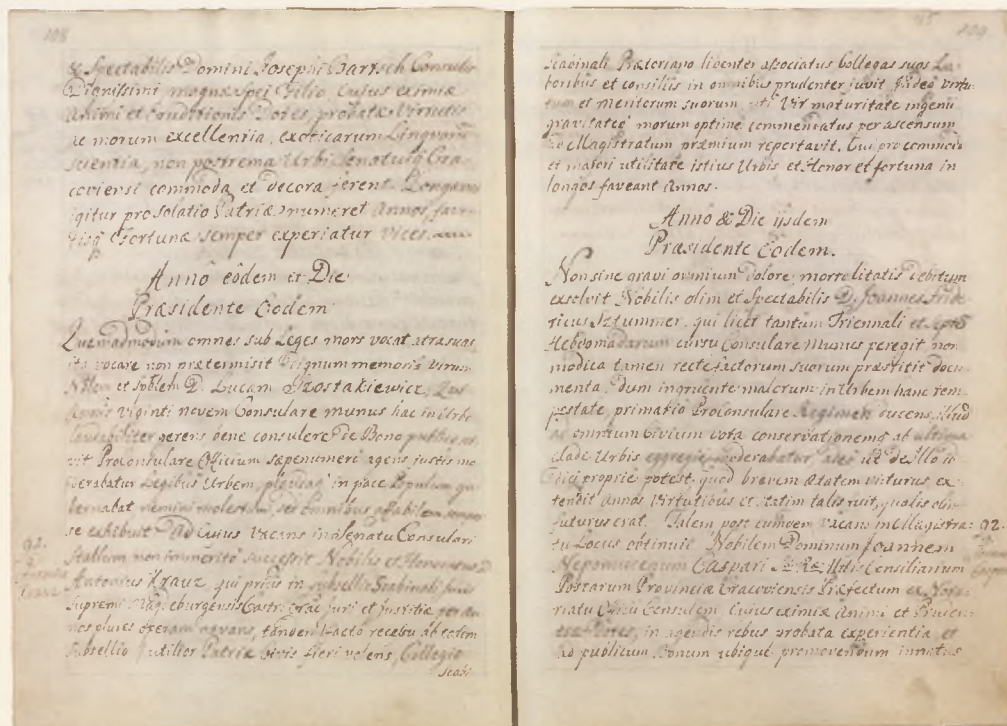 108
& Spectabilis Domini Josephi Bartsch Consulis
Dignissimi magnæ spei Filio Cuius eximiæ
Animi et Eruditionis Dotes, probatæ Virtutis
ac morum excellentia, exoticarum Linguarum
scientia, non postrema Urbi Senatuiq Cra
coviensi commoda et decora ferent. Longam
igitur pro solatio Patriæ numeret Annos, fave
Fortunæ semper experiatur vices.
Anno eôdem et Die
Præsidente Eodem
Quemadmodum omnes sub Leges mors vocat atra suas
ita vocare non prætermisit Dignum memoriâ Virum
Nblem et Spblem D. Lucam Szostakiewicz, Qui
Annis viginti novem Consulare munus hac in Urbe
laudabiliter gerens bene consulere de Bono publico
vit Proconsulare Officium sæpenumerò agens, justis mo
derabatur Legibus Urbem, in pace Populum gu
bernabat nemini molestum, sed omnibus affabilem semper
se exhibuit. Ad Cuius Vacans in Senatu Consulari
Stallum non immeritò successit Nobilis et
Antonius Krauz qui priùs in subsellio Scabinali Juris
Supremi Magdeburgensis Castri Crac: juri et justitiæ per an
nos plures operam navans, tandem facto recessu ab eodem
Subsellio utilior Patriæ Civis fieri volens, Collegio
Scabi
92.
Krauz
109
Scabinali Prætoriano libenter associatus Collegas suos La
boribus et consiliis in omnibus prudenter juvit. Ideo virtu
tum et meritorum suorum, uti Vir maturitate ingenii
gravitateq morum optime commendatus per ascensum
ad Magistratum præmium reportavit. Cui pro commodo
et majori utilitate istius Urbis et Honor et fortuna in
longos faveant Annos.
Anno & Die ijsdem
Præsidente Eôdem.
Non sine gravi omnium dolore, mortalitatis debitum
exsolvit Nobilis olim et Spectabilis D. Joannes Fride
ricus Sztummer, qui licet tantum Triennali et Septem
Hebdomadarum cursu Consulare Munus peregit non
modica tamen rectè factorum suorum præstitit docu
menta. Dum ingruente malorum in Urbem hanc tem
pestate, primatio Proconsulare Regimen ducens, illud
ad omnium Civium vota conservationemq ab ultima
clade Urbis egregiè moderabatur, ut de Illo
dici propriè potest, quod brevem ætatem victurus, ex
tendit Annos Virtutibus et statim talis fuit, qualis
futurus erat. Talem post eumdem vacans in Magistra
tu Locus obtinuit Nobilem Dominum Joannem
Nepomucenum Caspari Consiliarium
Postarum Provinciæ Cracoviensis Præfectum ex
riatu Officii Consulem, Cuius eximiæ Animi et Pruden
tiæ Dotes, in agendis rebus probata experientia, et
ad publicum Bonum ubique promovendum innatus
92.